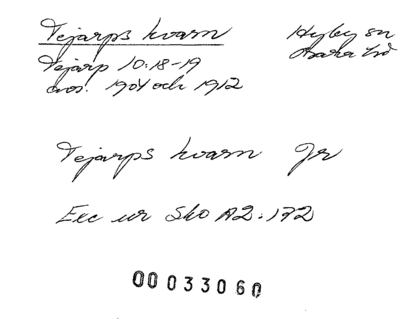 Tejarps kvarn
Hyby sn
Bara hd
Tejarp 10:18-19
avs. 1904 och 1912
Tejarps kvarn Jr
Exc ur Sko A2:172
00033060